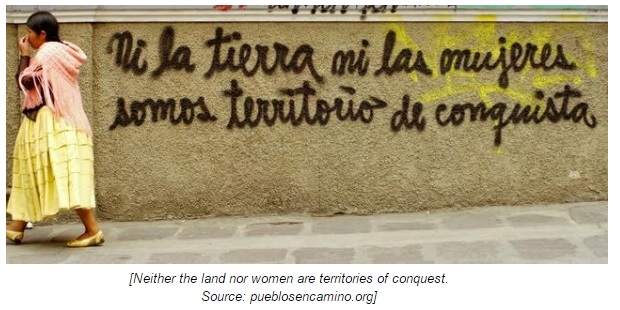 Ni la tierra ni las mujeres
somos territorio de conquista
[Neither the land nor women are territories of conquest.
Source: pueblosencamino.org]